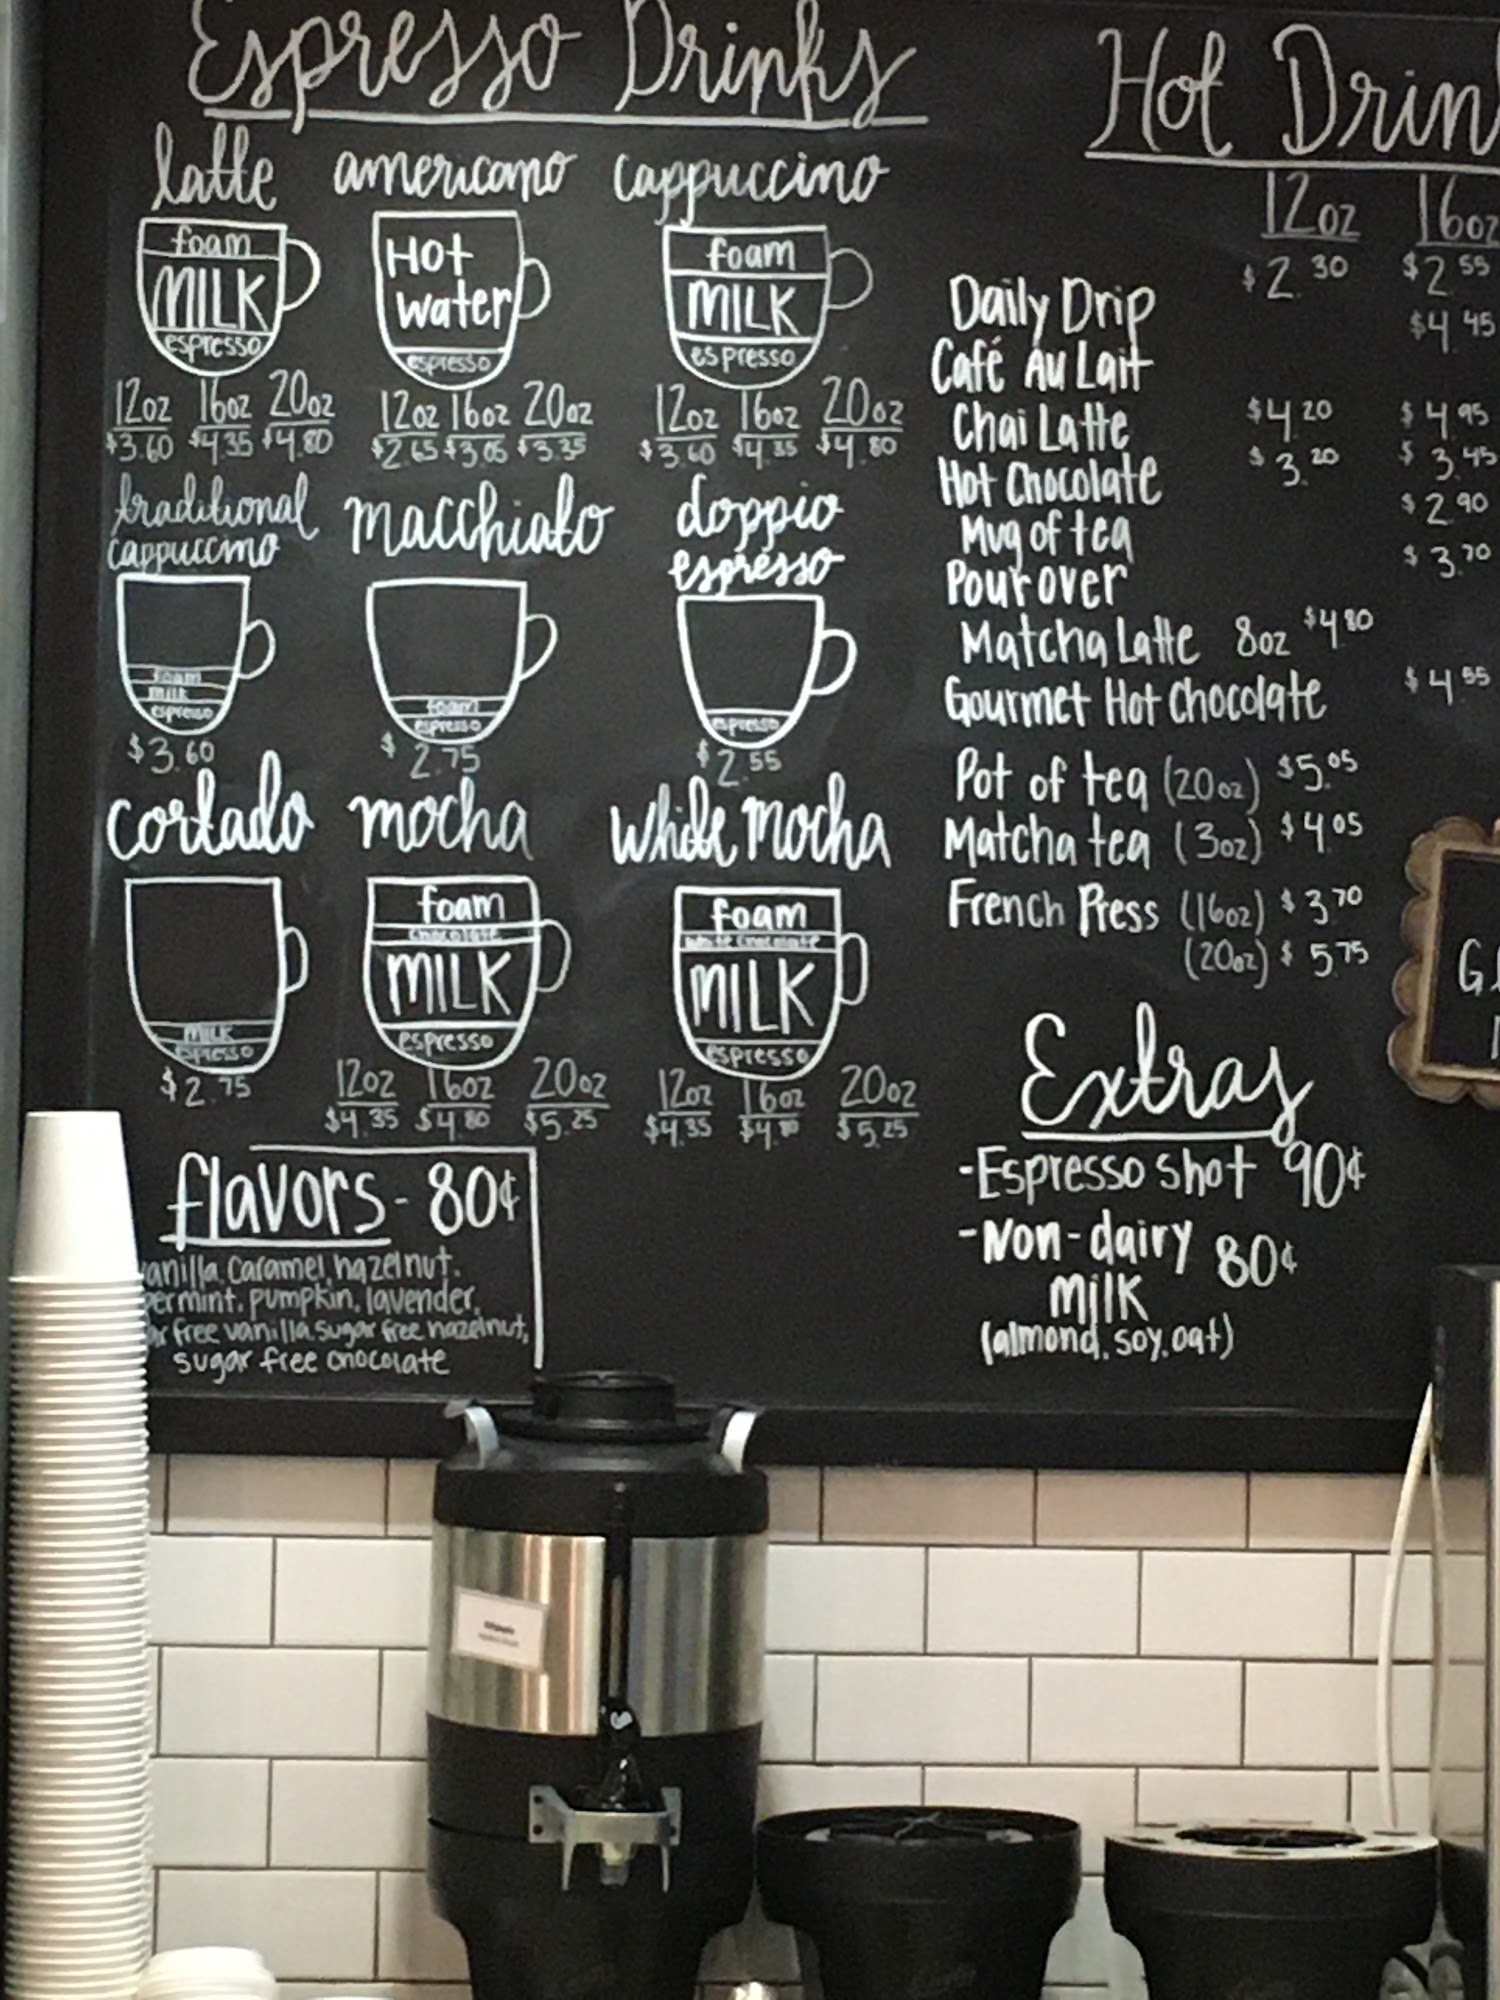 Espresso Drinks
latte americano cappuccino
foam
MILK
espresso
Hot
water
espresso
foam
MILK
espresso
12oz 16oz 20oz
$3.60 $4.35 $4.80
12oz 16oz 20oz
$2.65 $3.05 $3.35
12oz 16oz 20oz
$3.60 $4.35 $4.80
traditional
cappuccino
foam
milk
espresso
$3.60
macchiato
foam
espresso
$2.75
doppio
espresso
espresso
$2.55
cortado
MILK
espresso
$2.75
mocha
foam
chocolate
MILK
espresso
12oz 16oz 20oz
$4.35 $4.80 $5.25
white mocha
foam
white chocolate
MILK
espresso
12oz 16oz 20oz
$4.35 $4.80 $5.25
flavors - 80¢
anilla, caramel, hazelnut,
ermint, pumpkin, lavender,
ar free vanilla, sugar free hazelnut,
sugar free chocolate
Hot Drin
12oz 16oz
Daily Drip $2.30 $2.55
Café Au Lait $4.45
Chai Latte $4.20 $4.95
Hot Chocolate $3.20 $3.45
Mug of tea $2.90
Pour over $3.70
Matcha Latte 8oz $4.80
Gourmet Hot Chocolate $4.55
Pot of tea (20oz) $5.05
Matcha tea (3oz) $4.05
French Press (16oz) $3.70
(20oz) $5.75
Extras
-Espresso shot 90¢
-Non-dairy 80¢
milk
(almond, soy, oat)